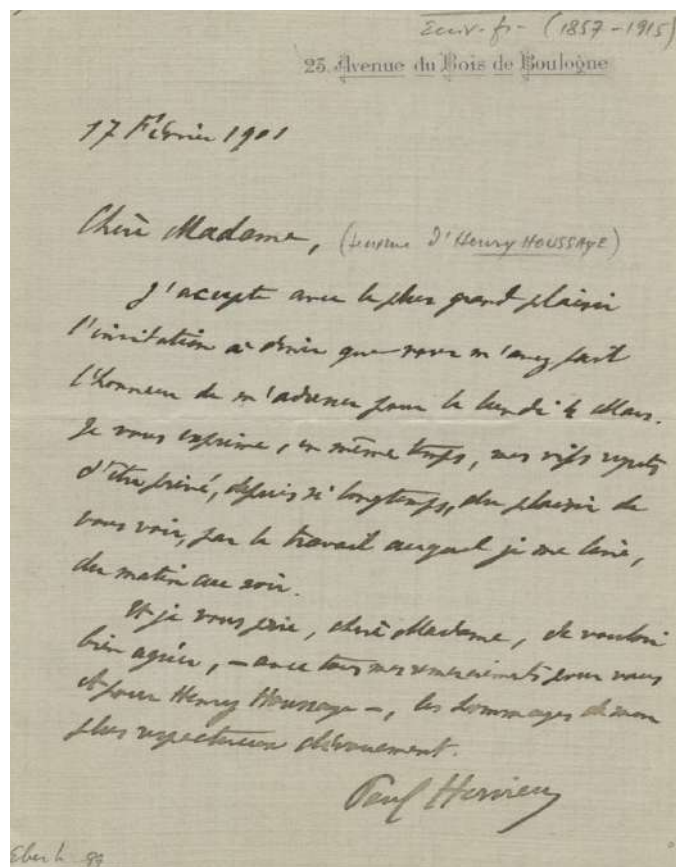 Ecriv. fr. (1857-1915)
25, Avenue du Bois de Boulogne
17 Février 1901
Chère Madame, (femme d'Henry HOUSSAYE)
J'accepte avec le plus grand plaisir
l'invitation à dîner que vous m'avez fait
l'honneur de m'adresser pour le lundi 4 Mars.
Je vous exprime, en même temps, mes vifs regrets
d'être privé, depuis si longtemps, du plaisir de
vous voir, par le travail auquel je me livre,
du matin au soir.
Et je vous prie, chère Madame, de vouloir
bien agréer, – avec tous mes remerciements pour vous
et pour Henry Houssaye –, les hommages de mon
plus respectueux dévouement.
Paul Hervieu